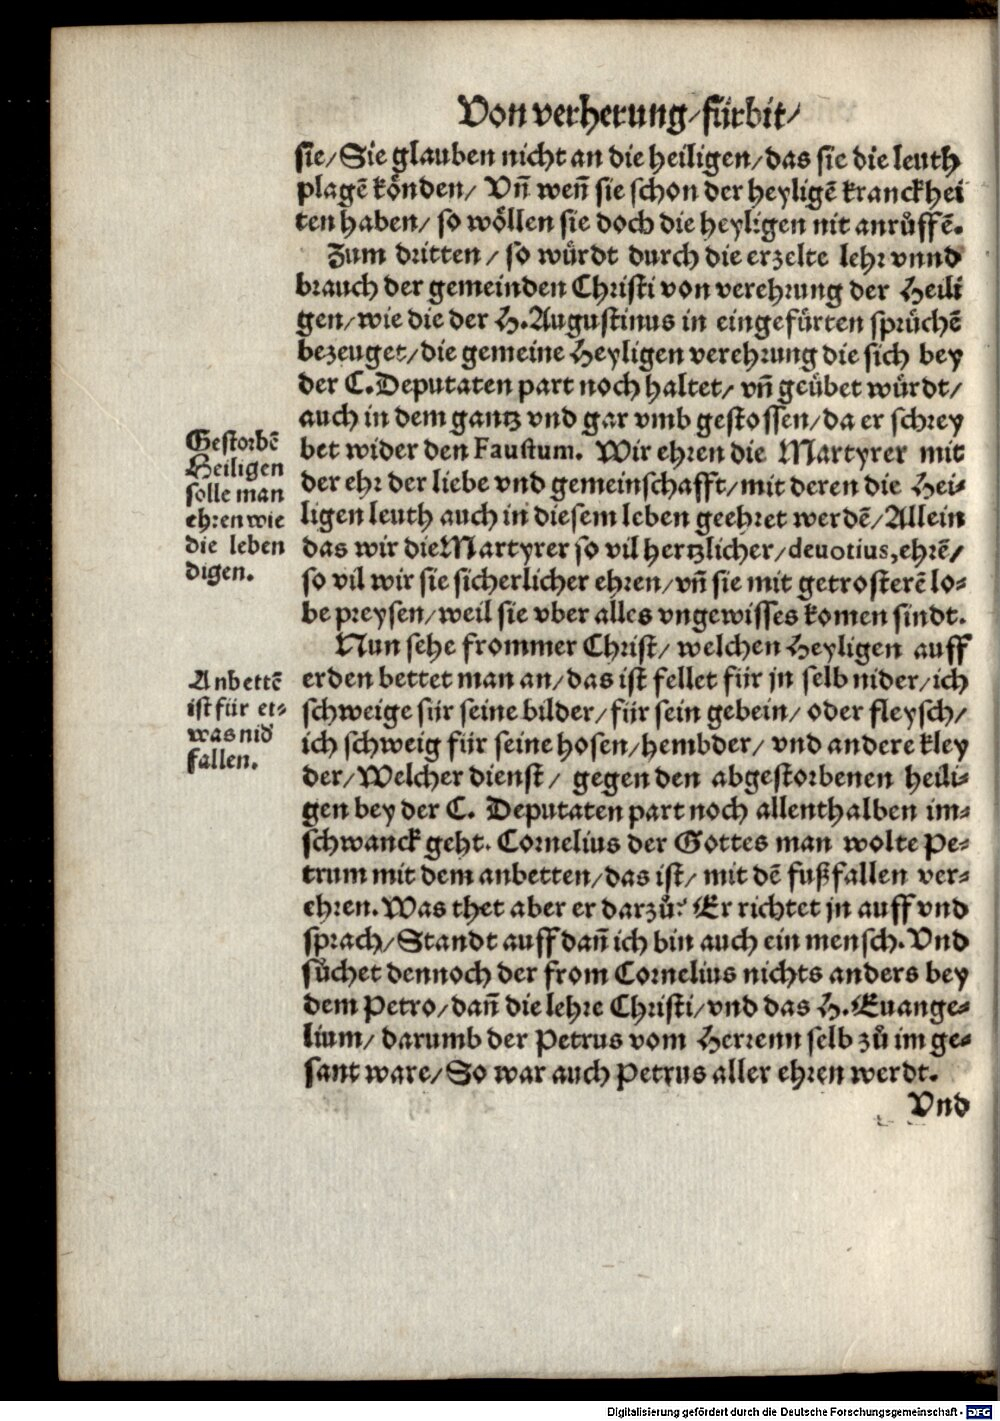 Von verherung/fürbit/
sie/Sie glauben nicht an die heiligen/das sie die leuth
plagē könden/ Vn̄ wen̄ sie schon der heyligē kranckhei
ten haben/ so wöllen sie doch die heyligen nit anrůffē.
Zum dritten/ so würdt durch die erzelte lehr vnnd
brauch der gemeinden Christi von verehrung der Heili
gen/wie die der H.Augustinus in eingefürten sprüchē
bezeuget/die gemeine Heyligen verehrung die sich bey
der C.Deputaten part noch haltet/ vn̄ geübet würdt/
auch in dem gantz vnd gar vmb gestossen/da er schrey
bet wider den Faustum. Wir ehren die Martyrer mit
der ehr der liebe vnd gemeinschafft/mit deren die Hei-
ligen leuth auch in diesem leben geehret werdē/Allein
das wir die Martyrer so vil hertzlicher/deuotius,ehrē/
so vil wir sie sicherlicher ehren/vn̄ sie mit getrosterē lo-
be preysen/weil sie vber alles vngewisses komen sindt.
Gestorbē
Heiligen
solle man
ehren wie
die leben
digen.
Nun sehe frommer Christ/ welchen Heyligen auff
erden bettet man an/das ist fellet für jn selb nider/ich
schweige für seine bilder/für sein gebein/ oder fleysch/
ich schweig für seine hosen/hembder/ vnd andere kley
der/Welcher dienst/ gegen den abgestorbenen heili-
gen bey der C. Deputaten part noch allenthalben im-
schwanck geht. Cornelius der Gottes man wolte Pe-
trum mit dem anbetten/das ist/ mit dē fußfallen ver-
ehren.Was thet aber er darzů? Er richtet jn auff vnd
sprach/Standt auff dan̄ ich bin auch ein mensch.Vnd
sůchet dennoch der from Cornelius nichts anders bey
dem Petro/dan̄ die lehre Christi/vnd das H.Euange-
lium/ darumb der Petrus vom Herrenn selb zů im ge-
sant ware/So war auch Petrus aller ehren werdt.
Anbettē
ist für et-
was nid
fallen.
Vnd
Digitalisierung gefördert durch die Deutsche Forschungsgemeinschaft - DFG